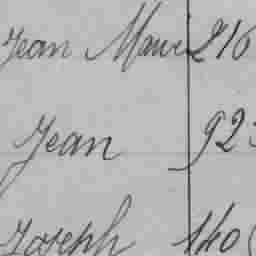 Jean Marie 216
Jean 923
Joseph 140